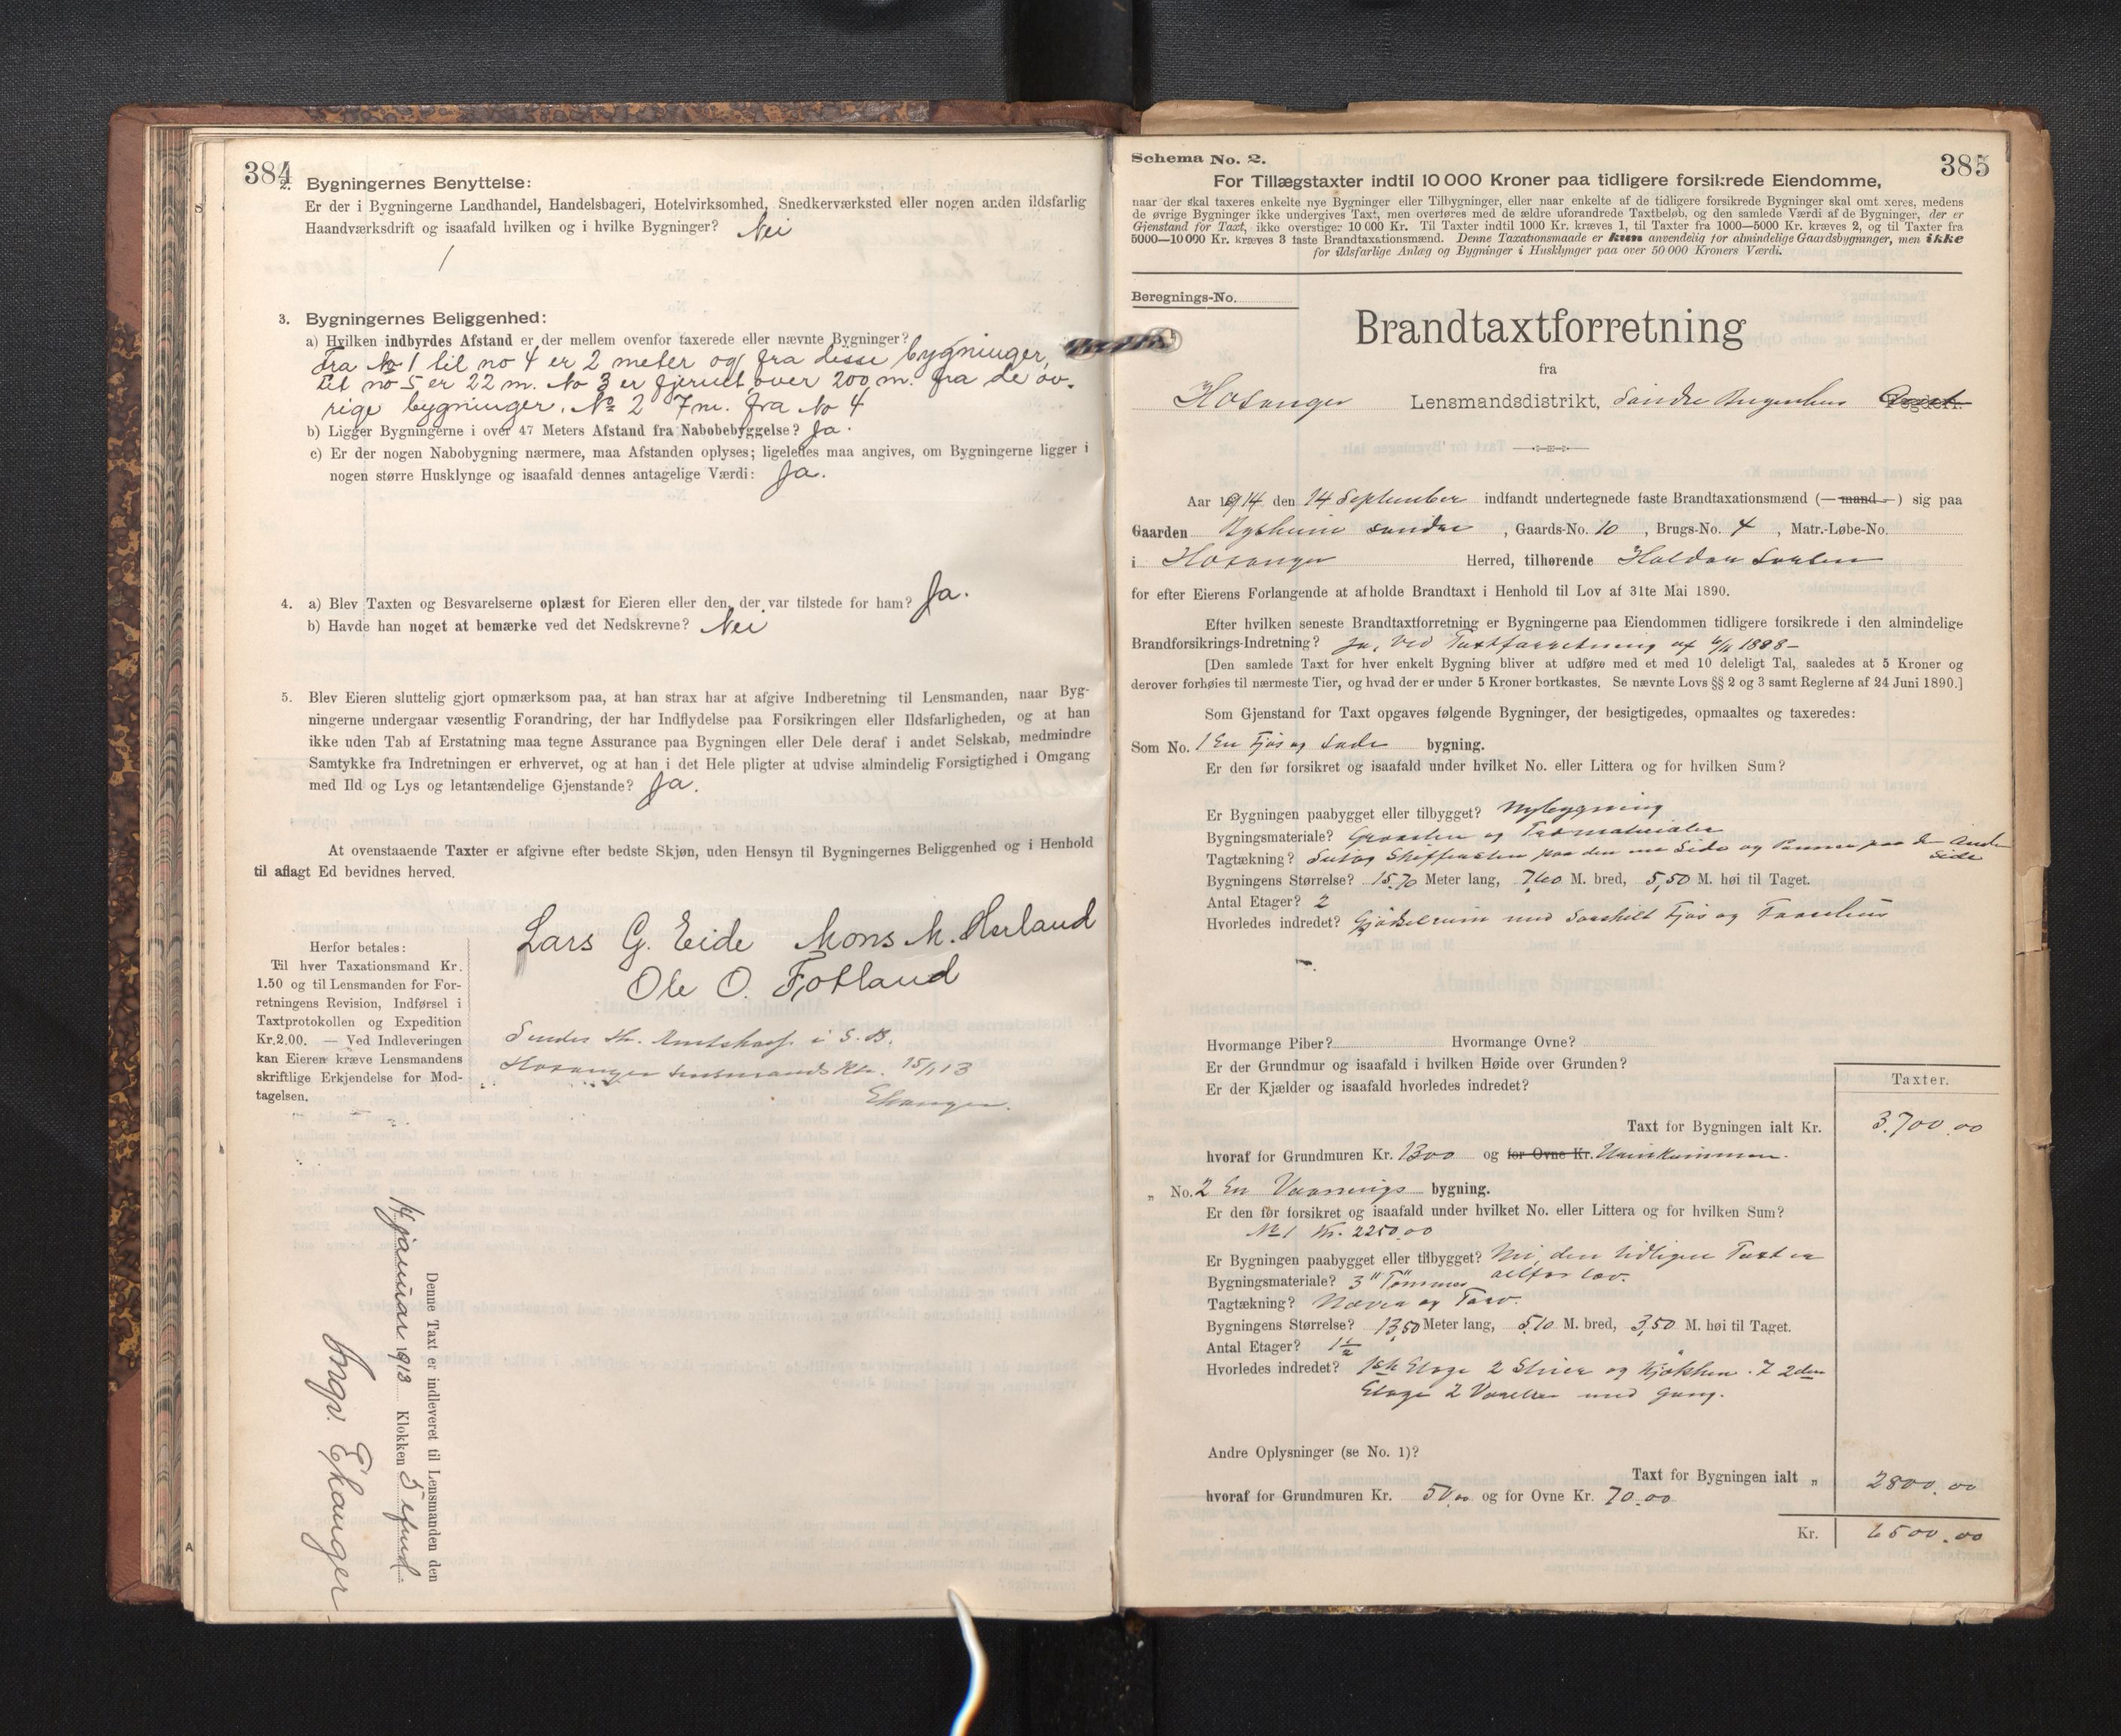 384
2. Bygningernes Benyttelse:
Er der i Bygningerne Landhandel, Handelsbageri, Hotelvirksomhed, Snedkerværksted eller nogen anden ildsfarlig
Haandværksdrift og isaafald hvilken og i hvilke Bygninger? Nei
3. Bygningernes Beliggenhed:
a) Hvilken indbyrdes Afstand er der mellem ovenfor taxerede eller nævnte Bygninger?
Fra No 1 til no 4 er 2 meter og fra disse bygninger
til no 5 er 22 m. No 3 er fjernet over 200 m. fra de øv-
rige bygninger. No 2 7 m. fra No 4
b) Ligger Bygningerne i over 47 Meters Afstand fra Nabobebyggelse? Ja.
c) Er der nogen Nabobygning nærmere, maa Afstanden oplyses; ligeledes maa angives, om Bygningerne ligger i
nogen større Husklynge og isaafald dennes antagelige Værdi: Ja.
4. a) Blev Taxten og Besvarelserne oplæst for Eieren eller den, der var tilstede for ham? Ja.
b) Havde han noget at bemærke ved det Nedskrevne? Nei
5. Blev Eieren sluttelig gjort opmærksom paa, at han strax har at afgive Indberetning til Lensmanden, naar Byg-
ningerne undergaar væsentlig Forandring, der har Indflydelse paa Forsikringen eller Ildsfarligheden, og at han
ikke uden Tab af Erstatning maa tegne Assurance paa Bygningen eller Dele deraf i andet Selskab, medmindre
Samtykke fra Indretningen er erhvervet, og at han i det Hele pligter at udvise almindelig Forsigtighed i Omgang
med Ild og Lys og letantændelige Gjenstande? Ja.
At ovenstaaende Taxter er afgivne efter bedste Skjøn, uden Hensyn til Bygningernes Beliggenhed og i Henhold
til aflagt Ed bevidnes herved.
Lars G. Eide Mons M. Herland
Ole O. Fotland
Herfor betales:
Til hver Taxationsmand Kr.
1.50 og til Lensmanden for For-
retningens Revision, Indførsel i
Taxtprotokollen og Expedition
Kr. 2.00. — Ved Indleveringen
kan Eieren kræve Lensmandens
skriftlige Erkjendelse for Mod-
tagelsen.
Sendes Hr. Amtskasf. i S. B.
Hosanger Lensmandsktr. 15/1 13
Ekanger.
Denne Taxt er indleveret til Lensmanden den
14 januar 1913 Klokken 5 efmd.
Ingv. Ekanger
Schema No. 2.
385
For Tillægstaxter indtil 10 000 Kroner paa tidligere forsikrede Eiendomme,
naar der skal taxeres enkelte nye Bygninger eller Tilbygninger, eller naar enkelte af de tidligere forsikrede Bygninger skal omtaxeres, medens
de øvrige Bygninger ikke undergives Taxt, men overføres med de ældre uforandrede Taxtbeløb, og den samlede Værdi af de Bygninger, der er
Gjenstand for Taxt, ikke overstiger 10 000 Kr. Til Taxter indtil 1000 Kr. kræves 1, til Taxter fra 1000—5000 Kr. kræves 2, og til Taxter fra
5000—10 000 Kr. kræves 3 faste Brandtaxationsmænd. Denne Taxationsmaade er kun anvendelig for almindelige Gaardsbygninger, men ikke
for ildsfarlige Anlæg og Bygninger i Husklynger paa over 50 000 Kroners Værdi.
Beregnings-No.
Brandtaxtforretning
fra
Hosanger Lensmandsdistrikt, Søndre Bergenhus Fogderi.
Aar 1914 den 14 September indfandt undertegnede faste Brandtaxationsmænd (—mand—) sig paa
Gaarden søndre, Gaards-No. 10, Brugs-No. 4, Matr.-Løbe-No.
i Hosanger Herred, tilhørende Haldor
for efter Eierens Forlangende at afholde Brandtaxt i Henhold til Lov af 31te Mai 1890.
Efter hvilken seneste Brandtaxtforretning er Bygningerne paa Eiendommen tidligere forsikrede i den almindelige
Brandforsikrings-Indretning? Ja, ved Taxtforretning af 6/11 1888 –
[Den samlede Taxt for hver enkelt Bygning bliver at udføre med et med 10 deleligt Tal, saaledes at 5 Kroner og
derover forhøies til nærmeste Tier, og hvad der er under 5 Kroner bortkastes. Se nævnte Lovs §§ 2 og 3 samt Reglerne af 24 Juni 1890.]
Som Gjenstand for Taxt opgaves følgende Bygninger, der besigtigedes, opmaaltes og taxeredes:
Som No. 1 En Fjøs og Lade bygning.
Er den før forsikret og isaafald under hvilket No. eller Littera og for hvilken Sum?
Er Bygningen paabygget eller tilbygget? Nybygning
Bygningsmateriale? Graasten og Træmaterialer
Tagtækning? Sutag Skiffersten paa den ene Side og Panner paa den Anden
Side
Bygningens Størrelse? 15,70 Meter lang, 7,60 M. bred, 5,50 M. høi til Taget.
Antal Etager? 2
Hvorledes indredet? Gjødselrum med særskilt Fjøs og Faarehus
Hvormange Piber? Hvormange Ovne?
Er der Grundmur og isaafald i hvilken Høide over Grunden?
Er der Kjælder og isaafald hvorledes indredet?
Taxter.
Taxt for Bygningen ialt Kr. 3.700.00
hvoraf for Grundmuren Kr. 1300 og for Ovne Kr.
„ No. 2 En Vaanings bygning.
Er den før forsikret og isaafald under hvilket No. eller Littera og for hvilken Sum?
No 1 Kr. 2250.00
Er Bygningen paabygget eller tilbygget? Nei, den tidligere Taxt er
altfor lav.
Bygningsmateriale? 3" Tømmer
Tagtækning? Næver og Torv.
Bygningens Størrelse? 13,50 Meter lang, 5,10 M. bred, 3,50 M. høi til Taget.
Antal Etager? 1½
Hvorledes indredet? 1ste Etage 2 Stuer og Kjøkken. I 2den
Etage 2 Værelser med Gang.
Andre Oplysninger (se No. 1)?
Taxt for Bygningen ialt „ 2800.00
hvoraf for Grundmuren Kr. 50.00 og for Ovne Kr. 70.00
Kr. 6500.00